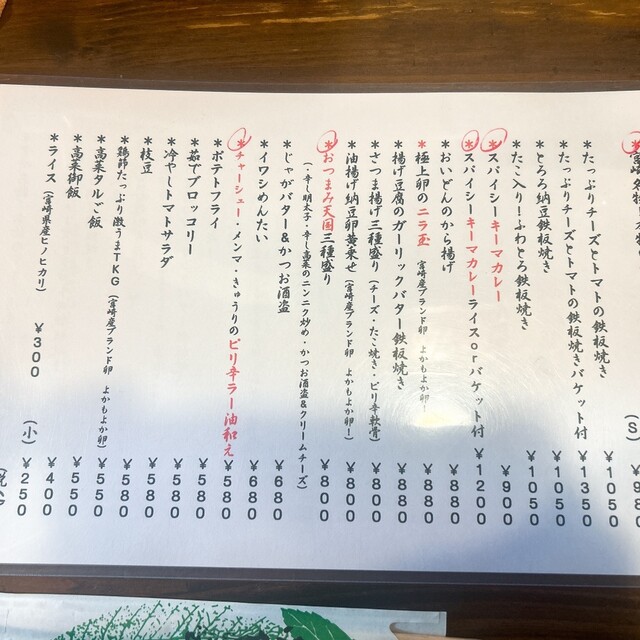 (S) ¥980
*たっぷりチーズとトマトの鉄板焼き ¥1050
*たっぷりチーズとトマトの鉄板焼きバケット付 ¥1350
*とろろ納豆鉄板焼き ¥1050
*たこ入り!ふわとろ鉄板焼き ¥1050
*スパイシーキーマカレー ¥900
*スパイシーキーマカレーライスorバケット付 ¥1200
*おいどんのから揚げ ¥880
*極上卵のニラ玉 (宮崎産ブランド卵 よかもよか卵!) ¥880
*揚げ豆腐のガーリックバター鉄板焼き ¥880
*さつま揚げ三種盛り (チーズ・たこ焼き・ピリ辛軟骨) ¥880
*油揚げ納豆卵黄乗せ (宮崎産ブランド卵 よかもよか卵!) ¥800
*おつまみ天国三種盛り ¥800
(・辛し明太子・辛し高菜のニンニク炒め・かつお酒盗&クリームチーズ)
*じゃがバター&かつお酒盗 ¥680
*イワシめんたい ¥680
*チャーシュー・メンマ・きゅうりのピリ辛ラー油和え ¥580
*ポテトフライ ¥580
*茹でブロッコリー ¥580
*冷やしトマトサラダ ¥580
*枝豆 ¥580
*鶏節たっぷり激うまTKG (宮崎産ブランド卵 よかもよか卵) ¥550
*高菜タルご飯 ¥550
*高菜御飯 ¥550
*ライス (宮崎県産ヒノヒカリ) ¥300 ¥400
(小) ¥250